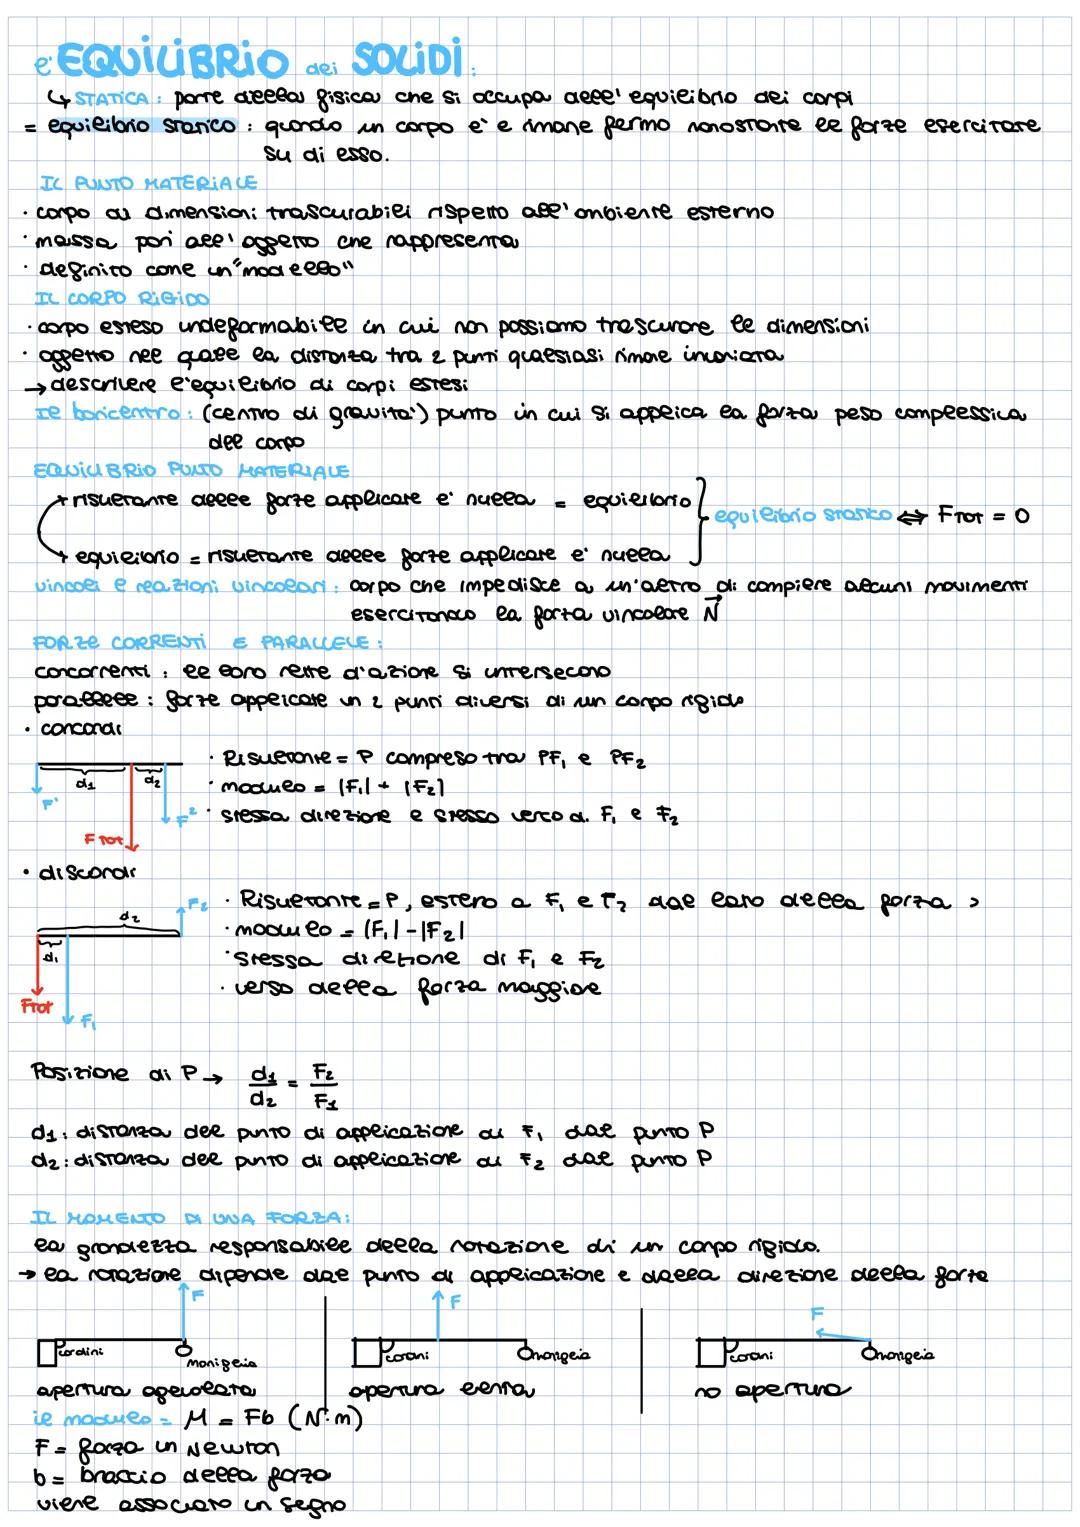 e' EQUILIBRIO dei SOLIDI:
↳ STATICA: parte della fisica che si occupa dell'equilibrio dei corpi
= equilibrio statico: quando un corpo e' e rimane fermo nonostante le forze esercitate
su di esso.
IL PUNTO MATERIALE
· corpo di dimensioni trascurabili rispetto all'ambiente esterno
· massa pari all'oggetto che rappresenta
· definito come un "modello"
IL CORPO RIGIDO
· corpo esteso indeformabile in cui non possiamo trascurare le dimensioni
· oggetto nel quale la distanza tra 2 punti qualsiasi rimane invariata
→ descrivere l'equilibrio di corpi estesi
Il baricentro: (centro di gravita') punto in cui si applica la forza peso complessiva
del corpo
EQUILIBRIO PUNTO MATERIALE
risultante delle forze applicate e' nulla = equilibrio
equilibrio statico ⇔ FTOT = 0
equilibrio = risultante delle forze applicate e' nulla
vincoli e reazioni vincolari: corpo che impedisce a un'altro di compiere alcuni movimenti
esercitando la forza vincolare N
FORZE CORRENTI E PARALLELE:
concorrenti: le loro rette d'azione si intersecano
parallele: forze applicate in 2 punti diversi di un corpo rigido
· concordi
· Risultante = P compreso tra PF₁ e PF₂
d₁ d₂
· modulo = |F₁| + |F₂|
F¹ F²
· stessa direzione e stesso verso di F₁ e F₂
F TOT
· discordi
F₂ · Risultante = P, esterno a F₁ e F₂ dal lato della forza >
d₂
· modulo = |F₁| - |F₂|
d₁
· stessa direzione di F₁ e F₂
· verso della forza maggiore
FTOT
F₁
Posizione di P → d₁/d₂ = F₂/F₁
d₁: distanza del punto di applicazione di F₁ dal punto P
d₂: distanza del punto di applicazione di F₂ dal punto P
IL MOMENTO DI UNA FORZA:
la grandezza responsabile della rotazione di un corpo rigido.
→ la rotazione dipende dal punto di applicazione e dalla direzione della forza
F F F
cardini maniglia cardini maniglia cardini maniglia
apertura agevolata apertura lenta no apertura
il modulo = M = Fb (N·m)
F = forza in Newton
b = braccio della forza
viene associato un segno